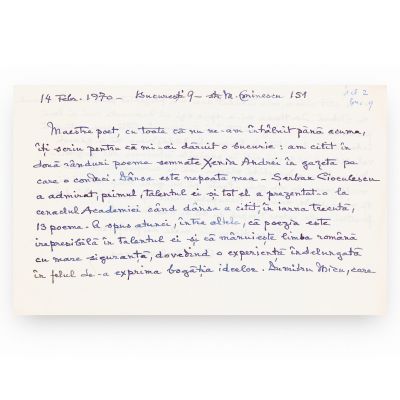 14 Febr. 1970 – București 9 – str. Th.
151
Maestre poet, cu toate că nu ne-am întâlnit până acuma,
îți scriu pentru că mi-ai dăruit o bucurie: am citit în
două rânduri poeme semnate Xenia Andrei în gazeta pe
care o conduci. Dânsa este nepoata mea – Șerban Cioculescu
a admirat, primul, talentul ei și tot el a prezentat-o la
cenaclul Academiei când dânsa a citit, în iarna trecută,
13 poeme. A spus atunci, între altele, că poezia este
irepresibilă în talentul ei și că mânuiește limba română
cu mare siguranță, dovedind o experiență îndelungată
în felul de-a exprima bogăția ideilor. Dumitru Micu, care